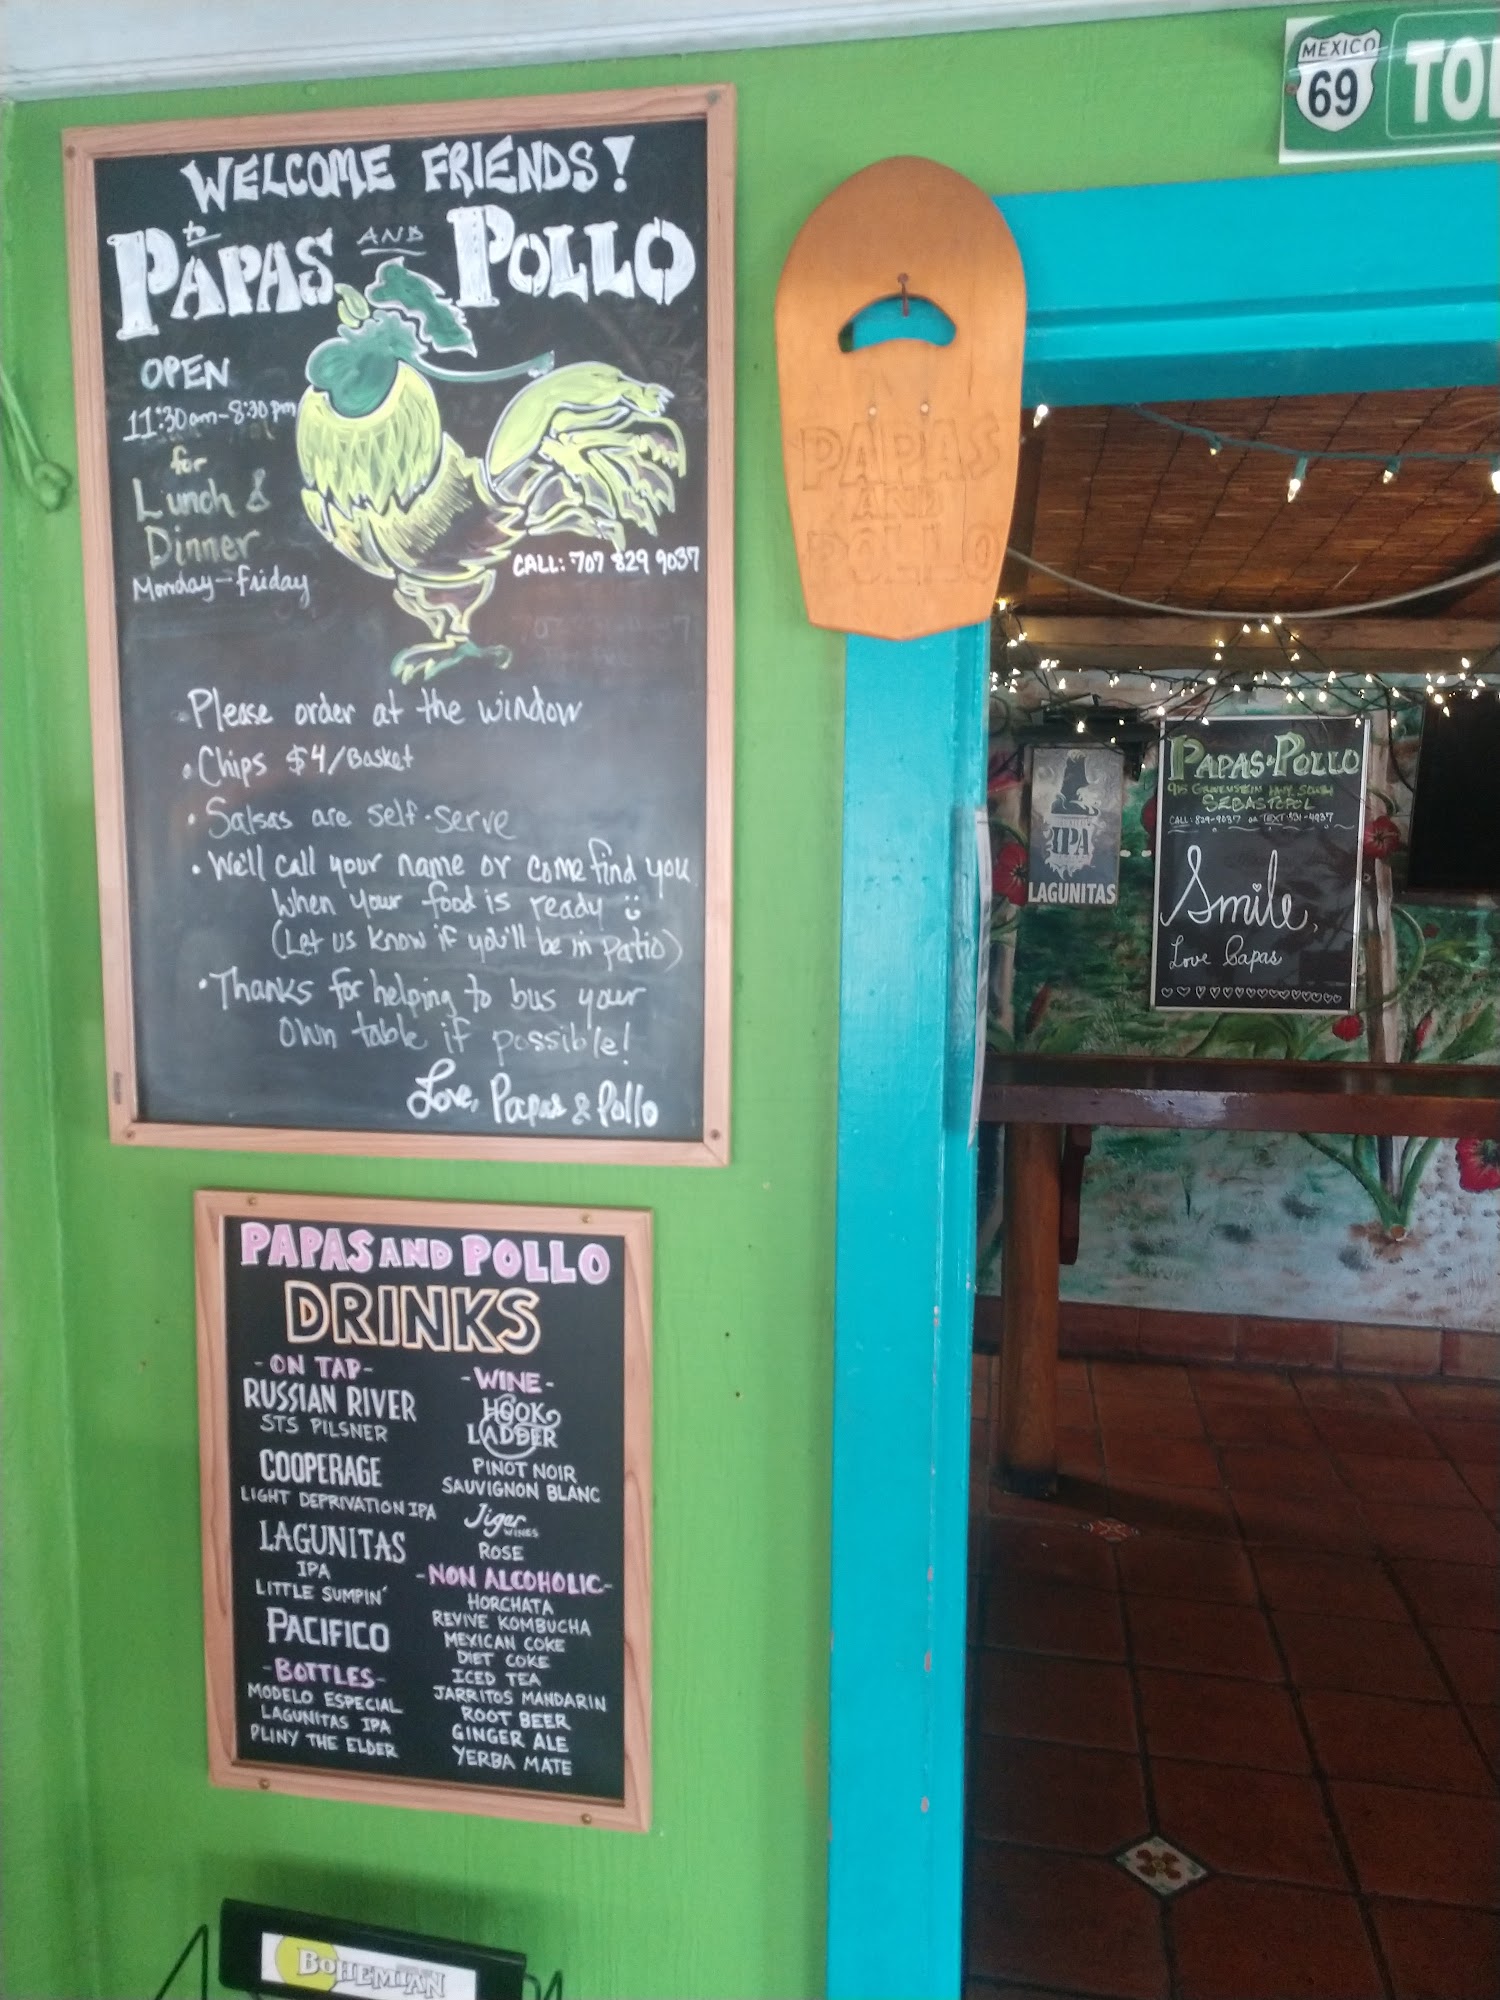 WELCOME FRIENDS!
to
PAPAS AND POLLO
OPEN
11:30am-8:30pm
for
Lunch &
Dinner
Monday-Friday
CALL: 707 829 9037
• Please order at the window
• Chips $4/Basket
• Salsas are self-serve
• We'll call your name or come find you
When your food is ready
(Let us know if you'll be in patio)
• Thanks for helping to bus your
own table if possible!
Love, Papas & Pollo
PAPAS AND POLLO
DRINKS
-ON TAP-
RUSSIAN RIVER
STS PILSNER
COOPERAGE
LIGHT DEPRIVATION IPA
LAGUNITAS
IPA
LITTLE SUMPIN'
PACIFICO
-BOTTLES-
MODELO ESPECIAL
LAGUNITAS IPA
PLINY THE ELDER
-WINE-
HOOK
&
LADDER
PINOT NOIR
SAUVIGNON BLANC
Jigar
WINES
ROSE
-NON ALCOHOLIC-
HORCHATA
REVIVE KOMBUCHA
MEXICAN COKE
DIET COKE
ICED TEA
JARRITOS MANDARIN
ROOT BEER
GINGER ALE
YERBA MATE
BOHEMIAN
PAPAS
AND
POLLO
MEXICO
69
TO
IPA
LAGUNITAS
PAPAS & POLLO
915 GRAVENSTEIN HWY SOUTH
SEBASTOPOL
CALL: 829-9037 or TEXT: 831-4937
Smile,
Love Papas